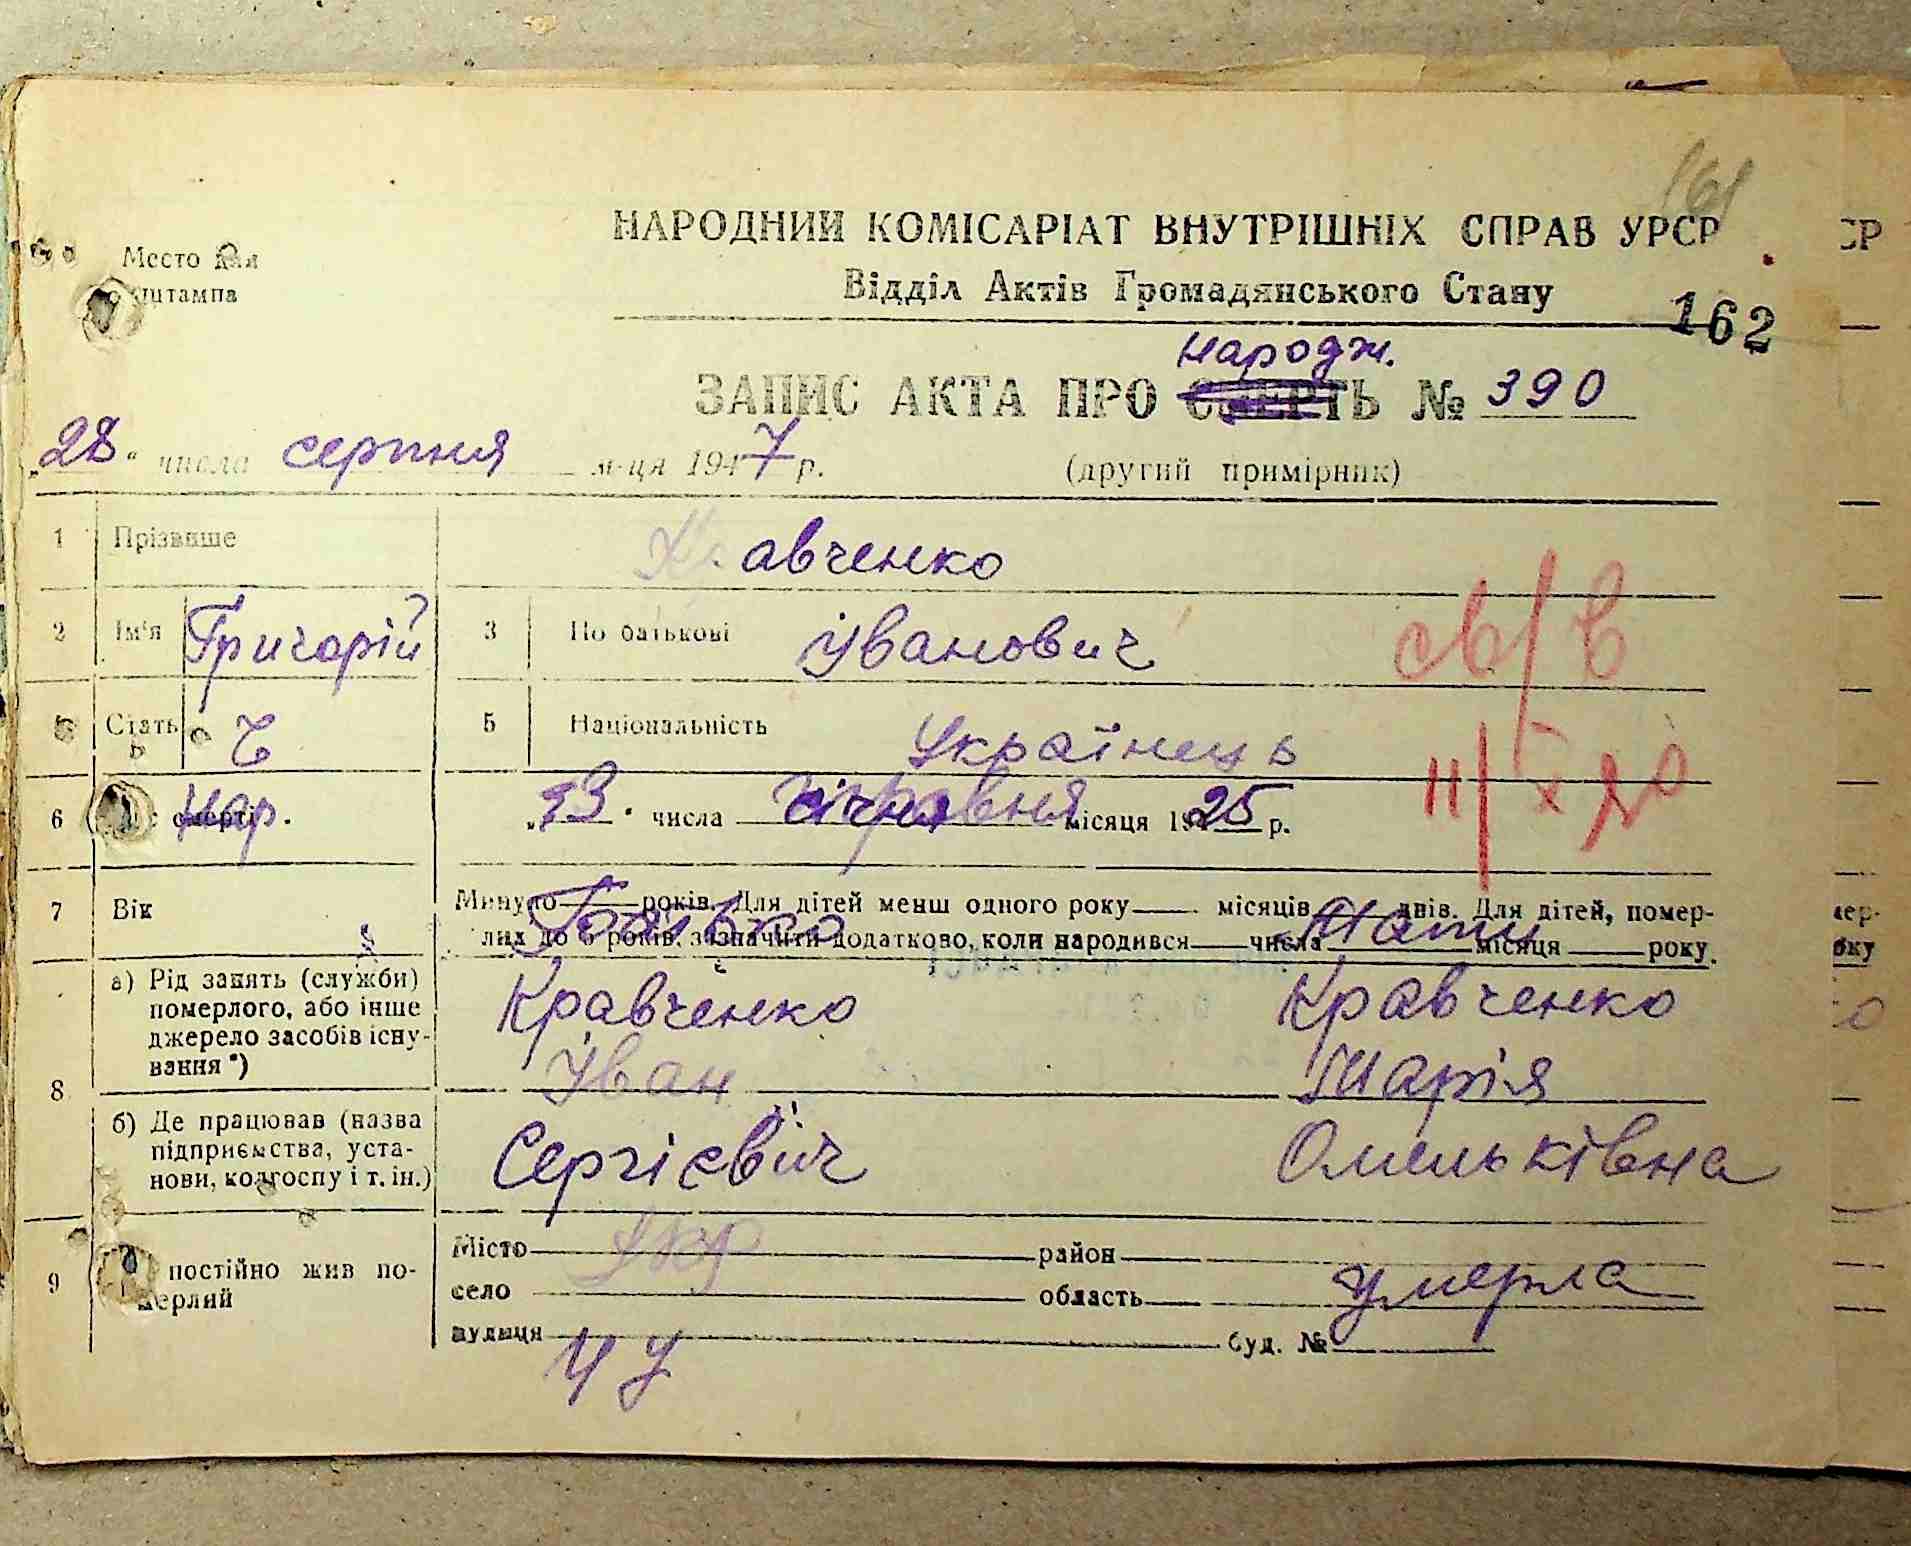 161
НАРОДНИЙ КОМІСАРІАТ ВНУТРІШНІХ СПРАВ УРСР
Место для
штампа
Відділ Актів Громадянського Стану
162
народж.
ЗАПИС АКТА ПРО СМЕРТЬ № 390
„28“ числа серпня м-ця 1947 р. (другий примірник)
1 Прізвище Кравченко
2 Ім'я Григорій 3 По батькові Іванович
св/в
Стать Ч 5 Національність Українець
11/X 20
6 Час смерті нар. „13“ числа травня місяця 1925 р.
7 Вік Минуло років. Для дітей менш одного року місяців днів. Для дітей, помер-
лих до 5 років, зазначити додатково, коли народився числа місяця року.
Батько Мати
8 а) Рід занять (службн)
померлого, або інше
джерело засобів існу-
вання *)
Кравченко Кравченко
Іван Марія
б) Де працював (назва
підприємства, уста-
нови, колгоспу і т. ін.)
Сергієвич Омельківна
9 Де постійно жив по-
мерлий
Місто район
Укр
село область
умерла
вулиця буд. №